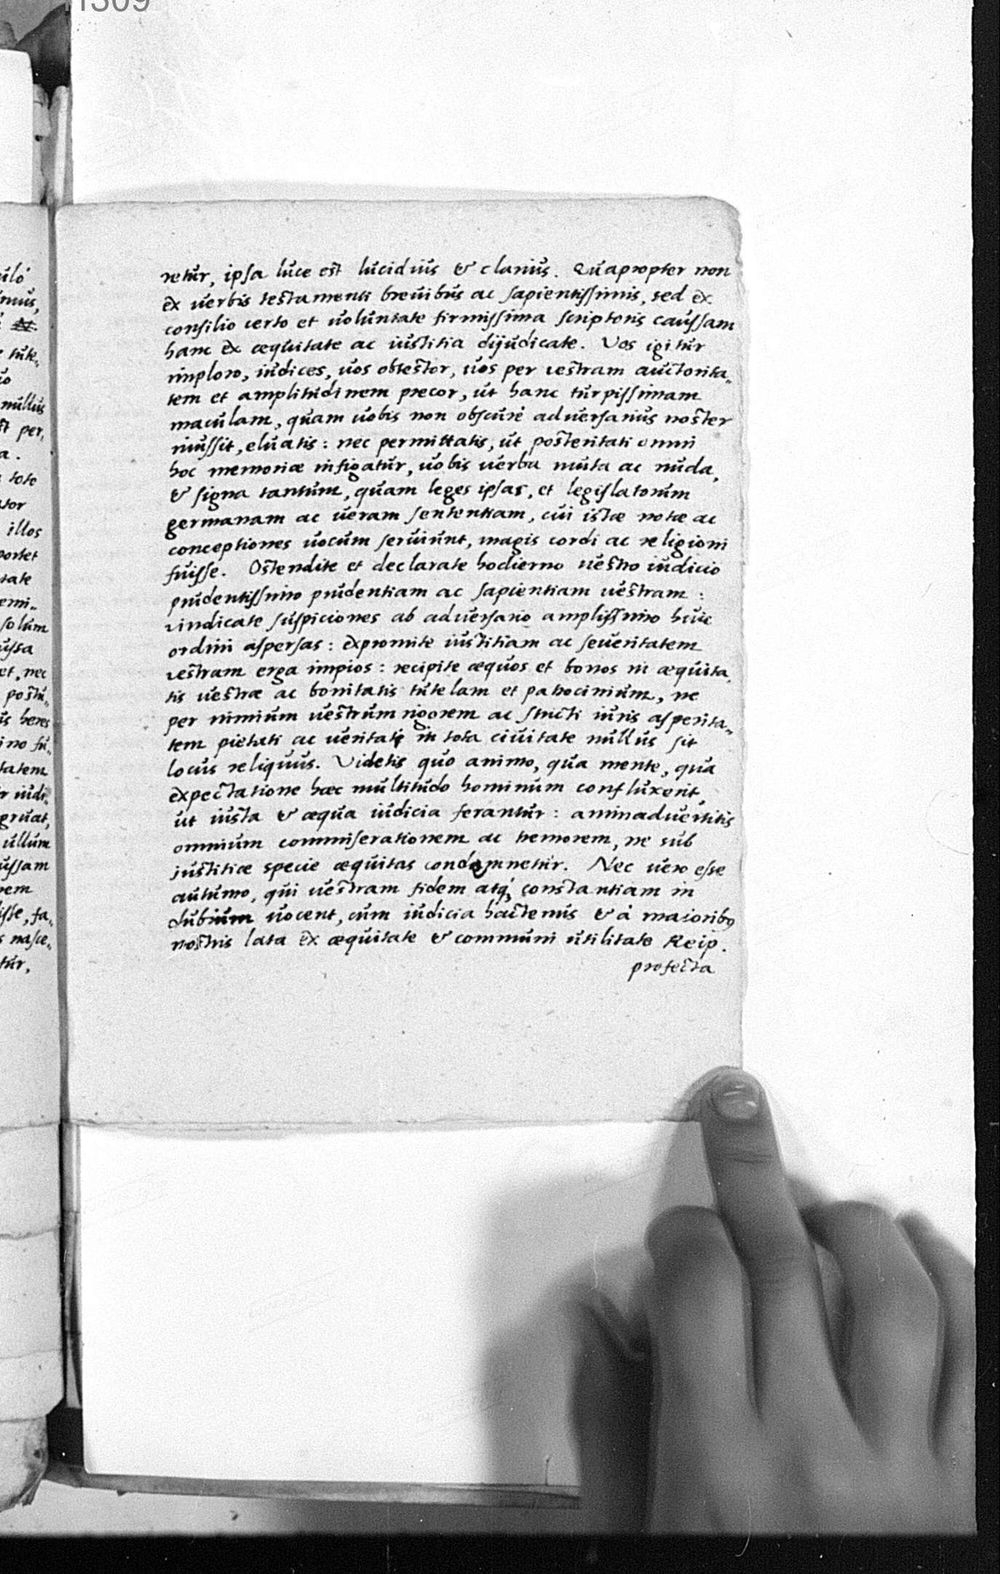 1309
retur, ipsa luce est lucidius & clarius. Quapropter non
ex verbis testamenti brevibus ac sapientissimis, sed ex
consilio certo et voluntate firmissima scriptoris caussam
hanc ex æquitate ac iustitia dijudicate. Vos igitur
imploro, iudices, vos obtestor, vos per vestram auctorita-
tem et amplitudinem precor, ut hanc turpissimam
maculam, quam vobis non obscure adversarius noster
inussit, eluatis: nec permittatis, ut posteritati omni
hoc memoriæ infigatur, vobis verba muta ac nuda,
& signa tantum, quam leges ipsas, et legislatorum
germanam ac veram sententiam, cui istæ notæ ac
conceptiones vocum serviunt, magis cordi ac religioni
fuisse. Ostendite et declarate hodierno vestro iudicio
prudentissimo prudentiam ac sapientiam vestram:
vindicate suspiciones ab adversario amplissimo huic
ordini aspersas: expromite iustitiam ac severitatem
vestram erga impios: recipite æquos et bonos in æquita-
tis vestræ ac bonitatis tutelam et patrocinium, ne
per nimium vestrum rigorem ac stricti iuris asperita-
tem pietati ac veritati in tota civitate nullus sit
locus reliquus. Videtis quo animo, qua mente, qua
expectatione hæc multitudo hominum confluxerit
ut iusta & æqua iudicia ferantur: animadvertitis
omnium commiserationem ac tremorem, ne sub
iustitiæ specie æquitas condemnetur. Nec vero esse
autumo, qui vestram fidem atq; constantiam in
dubium vocent, cum iudicia hactenus & à maioribus
nostris lata ex æquitate & communi utilitate Reip.
profecta
nullus
illos
solum
et, nec
heres
tatem
ullum